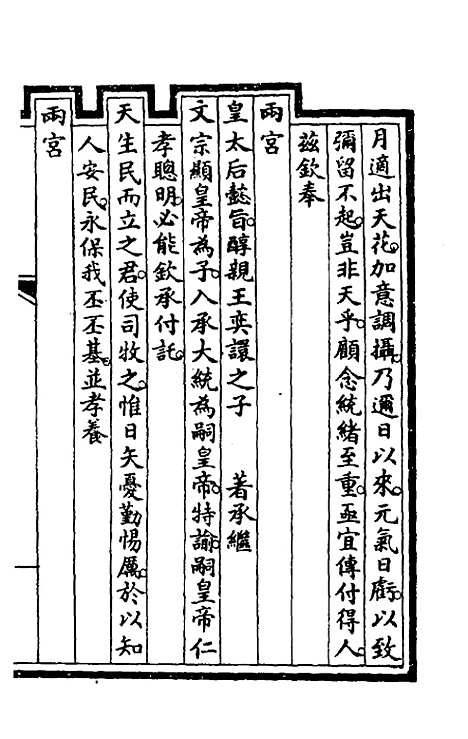 月適出天花。加意調攝。乃邇日以來。元氣日虧。以致
彌留不起。豈非天乎。顧念統緒至重。亟宜傳付得人。
茲欽奉
兩宮
皇太后懿旨。醇親王奕譞之子　著承繼
文宗顯皇帝為子。入承大統為嗣皇帝。特諭。嗣皇帝仁
孝聰明。必能欽承付託。
天生民而立之君。使司牧之。惟日矢憂勤惕厲。於以知
人安民。永保我丕丕基。並孝養
兩宮